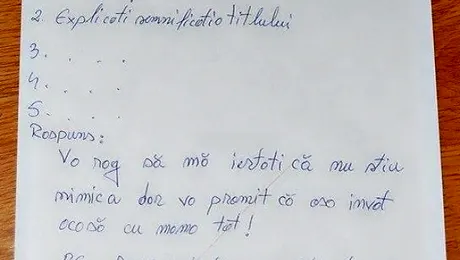 2. Explicati semnificatia titlului
3. . . . .
4. . . . .
5. . . . .
Raspuns:
Va rog să mă iertati că nu stiu
nimica dar va promit că asa invat
acasă cu mama tat!